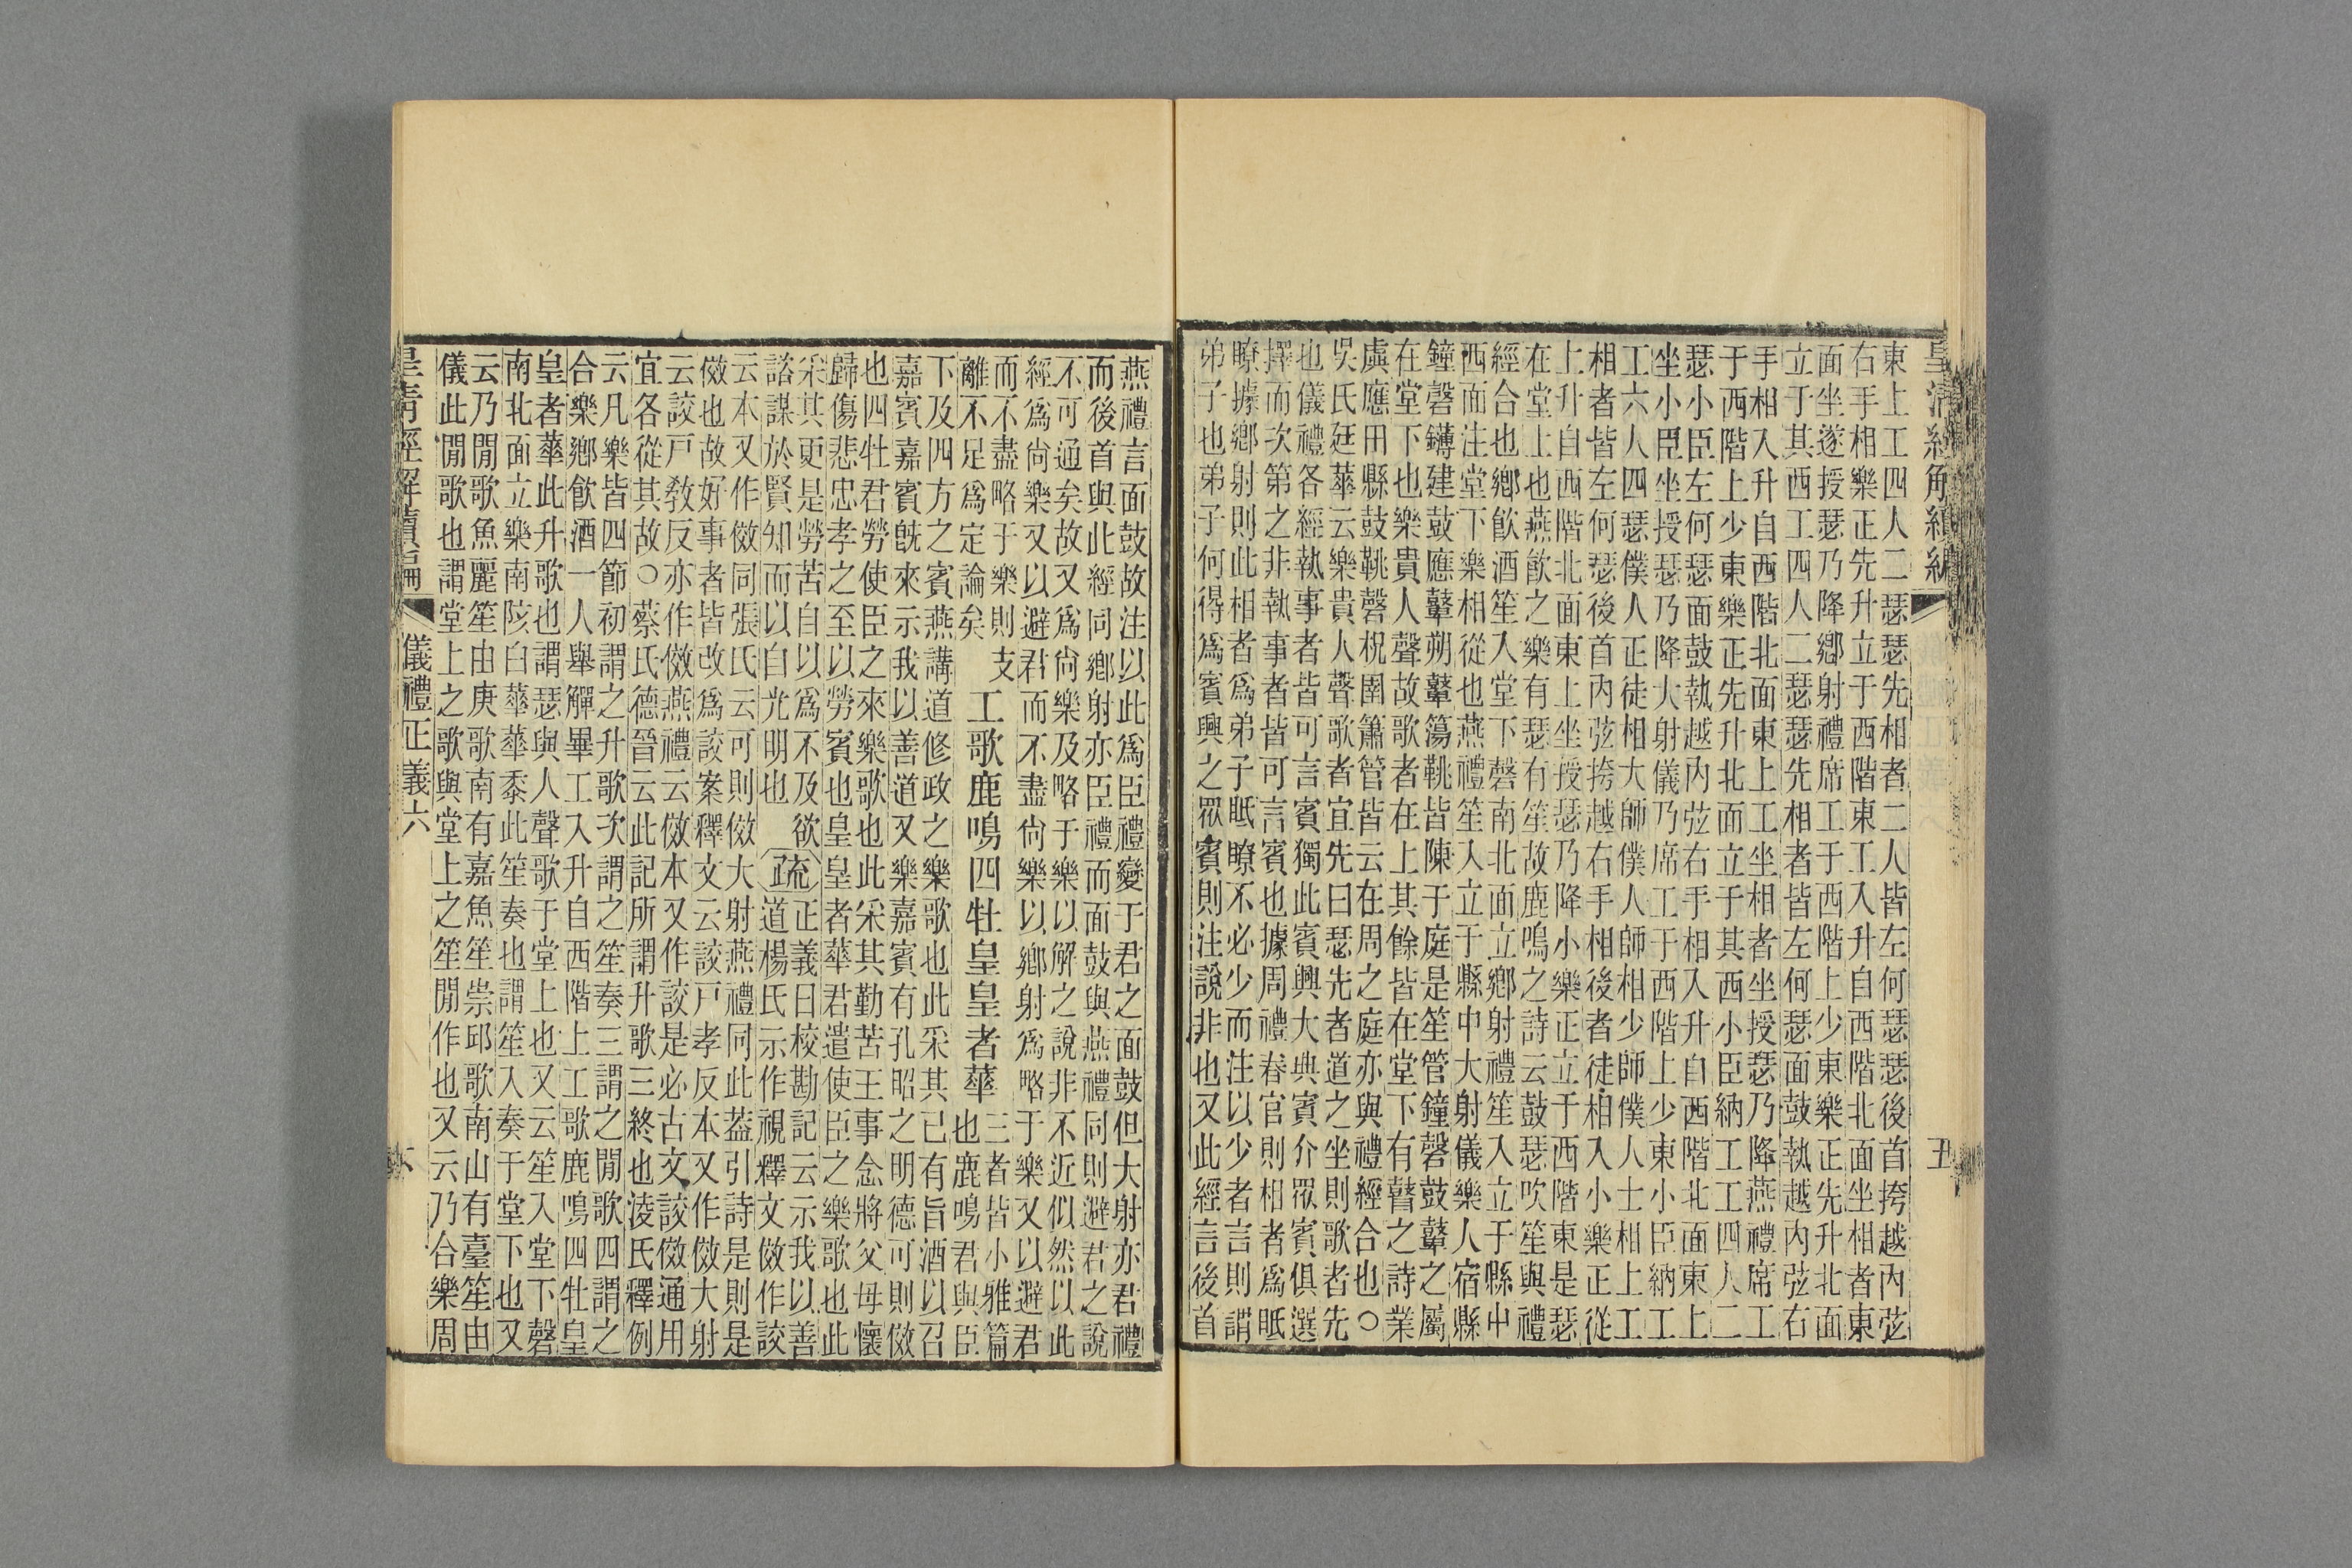 皇清經解續編
東上工四人二瑟瑟先相者二人皆左何瑟瑟後首挎越內弦
右手相樂正先升立于西階東工入升自西階北面坐相者東
面坐遂授瑟乃降鄉射禮席工于西階上少東樂正先升北面
立于其西工四人二瑟瑟先相者皆左何瑟面鼓執越內弦右
手相入升自西階北面東上工坐相者坐授瑟乃降燕禮席工
于西階上少東樂正先升北面立于其西小臣納工工四人二
瑟小臣左何瑟面鼓執越內弦右手相入升自西階北面東上
坐小臣坐授瑟乃降大射儀乃席工于西階上少東小臣納工
工六人四瑟僕人正徒相大師僕人師相少師僕人士相上工
相者皆左何瑟後首內弦挎越右手相後者徒相入小樂正從
上升自西階北面東上坐授瑟乃降小樂正立于西階東是瑟
在堂上也燕飲之樂有瑟有笙故鹿鳴之詩云鼓瑟吹笙與禮
經合也鄉飲酒笙入堂下磬南北面立鄉射禮笙入立于縣中
西面注堂下樂相從也燕禮笙入立于縣中大射儀樂人宿縣
鐘磬鑮建鼓應鼙朔鼙簜鞉皆陳于庭是笙管鐘磬鼓鼙之屬
在堂下也樂貴人聲故歌者在上其餘皆在堂下有瞽之詩業
虡應田縣鼓鞉磬柷圉簫管皆云在周之庭亦與禮經合也○
吳氏廷華云樂貴人聲歌者宜先曰瑟先者道之坐則歌者先
也儀禮各經執事者皆可言賓獨此賓興大典賓介眾賓俱選
擇而次第之非執事者皆可言賓也據周禮春官則相者爲眡
瞭據鄉射則此相者爲弟子眡瞭不必少而注以少者言則謂
弟子也弟子何得爲賓興之眾賓則注說非也又此經言後首
燕禮言面鼓故注以此爲臣禮變于君之面鼓但大射亦君禮
而後首與此經同鄉射亦臣禮而面鼓與燕禮同則避君之說
不可通矣故又爲尚樂及略于樂以解之說非不近似然以此
經爲尚樂又以避君而不盡尚樂以鄉射爲略于樂又以避君
而不盡略于樂則支
離不足爲定論矣
工歌鹿鳴四牡皇皇者華
三者皆小雅篇
也鹿鳴君與臣
下及四方之賓燕講道修政之樂歌也此采其已有旨酒以召
嘉賓嘉賓旣來示我以善道又樂嘉賓有孔昭之明德可則傚
也四牡君勞使臣之來樂歌也此采其勤苦王事念將父母懷
歸傷悲忠孝之至以勞賓也皇皇者華君遣使臣之樂歌也此
采其更是勞苦自以爲不及欲
諮謀於賢知而以自光明也
疏
正義曰校勘記云示我以善
道楊氏示作視釋文傚作詨
云本又作傚同張氏云可則傚大射燕禮同此蓋引詩是則是
傚也故好事者皆改爲詨案釋文云詨戸孝反本又作傚大射
云詨戸教反亦作傚燕禮云傚本又作詨是必古文詨傚通用
宜各從其故○蔡氏德晉云此記所謂升歌三終也淩氏釋例
云凡樂皆四節初謂之升歌次謂之笙奏三謂之閒歌四謂之
合樂鄉飲酒一人舉觶畢工入升自西階上工歌鹿鳴四牡皇
皇者華此升歌也謂瑟與人聲歌于堂上也又云笙入堂下磬
南北面立樂南陔白華華黍此笙奏也謂笙入奏于堂下也又
云乃閒歌魚麗笙由庚歌南有嘉魚笙崇邱歌南山有臺笙由
儀此閒歌也謂堂上之歌與堂上之笙閒作也又云乃合樂周
皇清經解續編 儀禮正義六